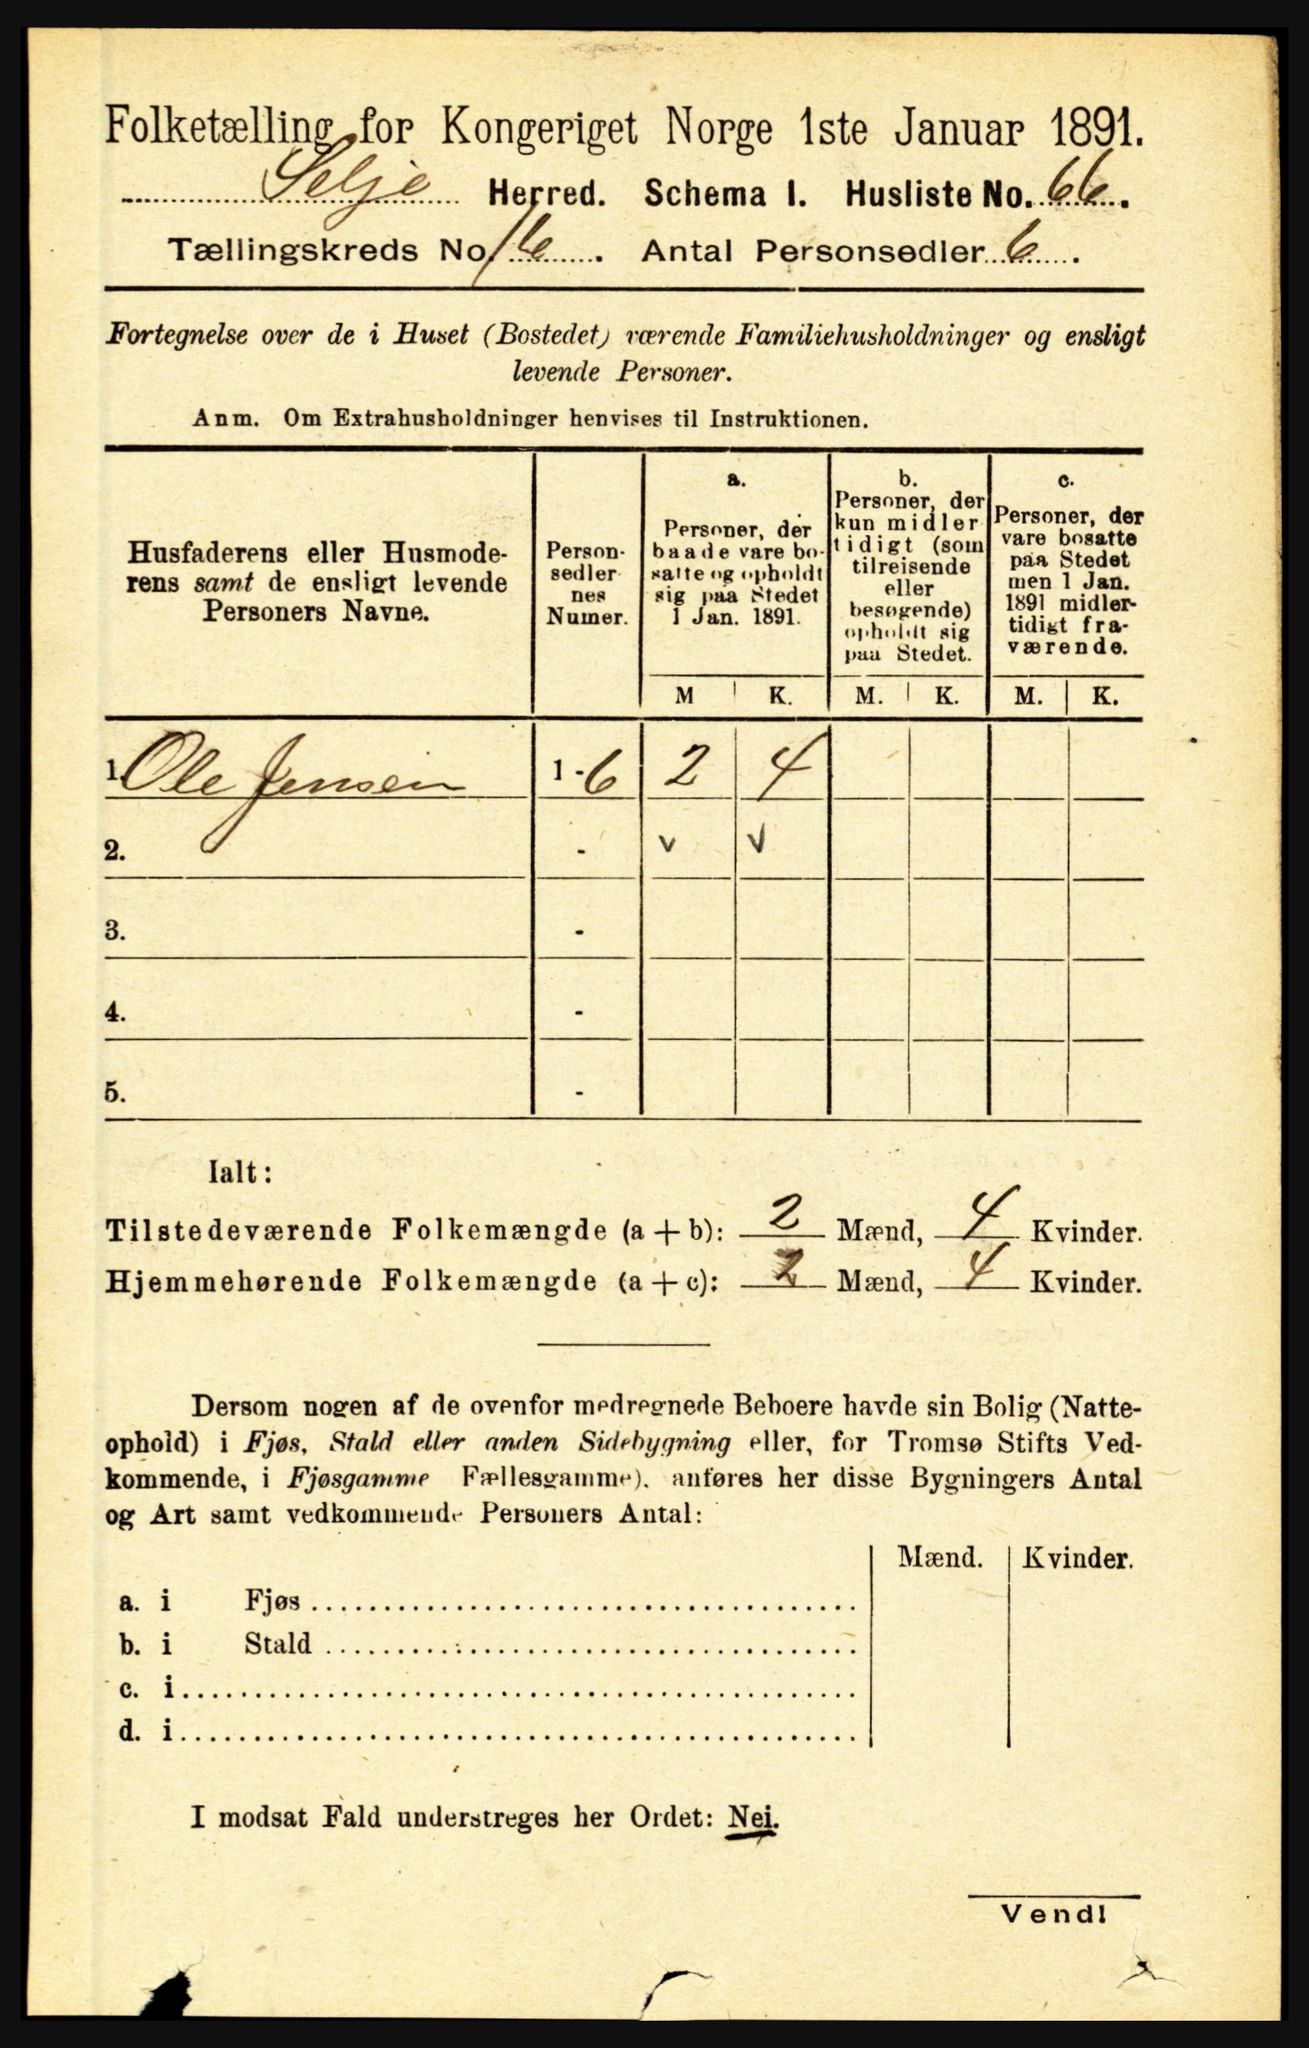 Folketælling for Kongeriget Norge 1ste Januar 1891.
Selje Herred. Schema I. Husliste No. 66.
Tællingskreds No. 16. Antal Personsedler 6.
Fortegnelse over de i Huset (Bostedet) værende Familiehusholdninger og ensligt
levende Personer.
Anm. Om Extrahusholdninger henvises til Instruktionen.
Husfaderens eller Husmode-
rens samt de ensligt levende
Personers Navne.
Person-
sedler
nes
Numer.
a.
Personer, der
baade vare bo-
satte og opholdt
sig paa Stedet
1 Jan. 1891.
b.
Personer, der
kun midler
tidigt (som
tilreisende
eller
besøgende)
opholdt sig
paa Stedet.
c.
Personer, der
vare bosatte
paa Stedet
men 1 Jan.
1891 midler-
tidigt fra-
værende.
M K. M. K. M. K.
1. Ole Jensen 1-6 2 4
2. - v v
3. -
4. -
5. -
Ialt:
Tilstedeværende Folkemængde (a + b): 2 Mænd, 4 Kvinder.
Hjemmehørende Folkemængde (a + c): 2 Mænd, 4 Kvinder.
Dersom nogen af de ovenfor medregnede Beboere havde sin Bolig (Natte-
ophold) i Fjøs, Stald eller anden Sidebygning eller, for Tromsø Stifts Ved-
kommende, i Fjøsgamme Fællesgamme), anføres her disse Bygningers Antal
og Art samt vedkommende Personers Antal:
Mænd. Kvinder.
a. i Fjøs
b. i Stald
c. i
d. i
I modsat Fald understreges her Ordet: Nei.
Vend!